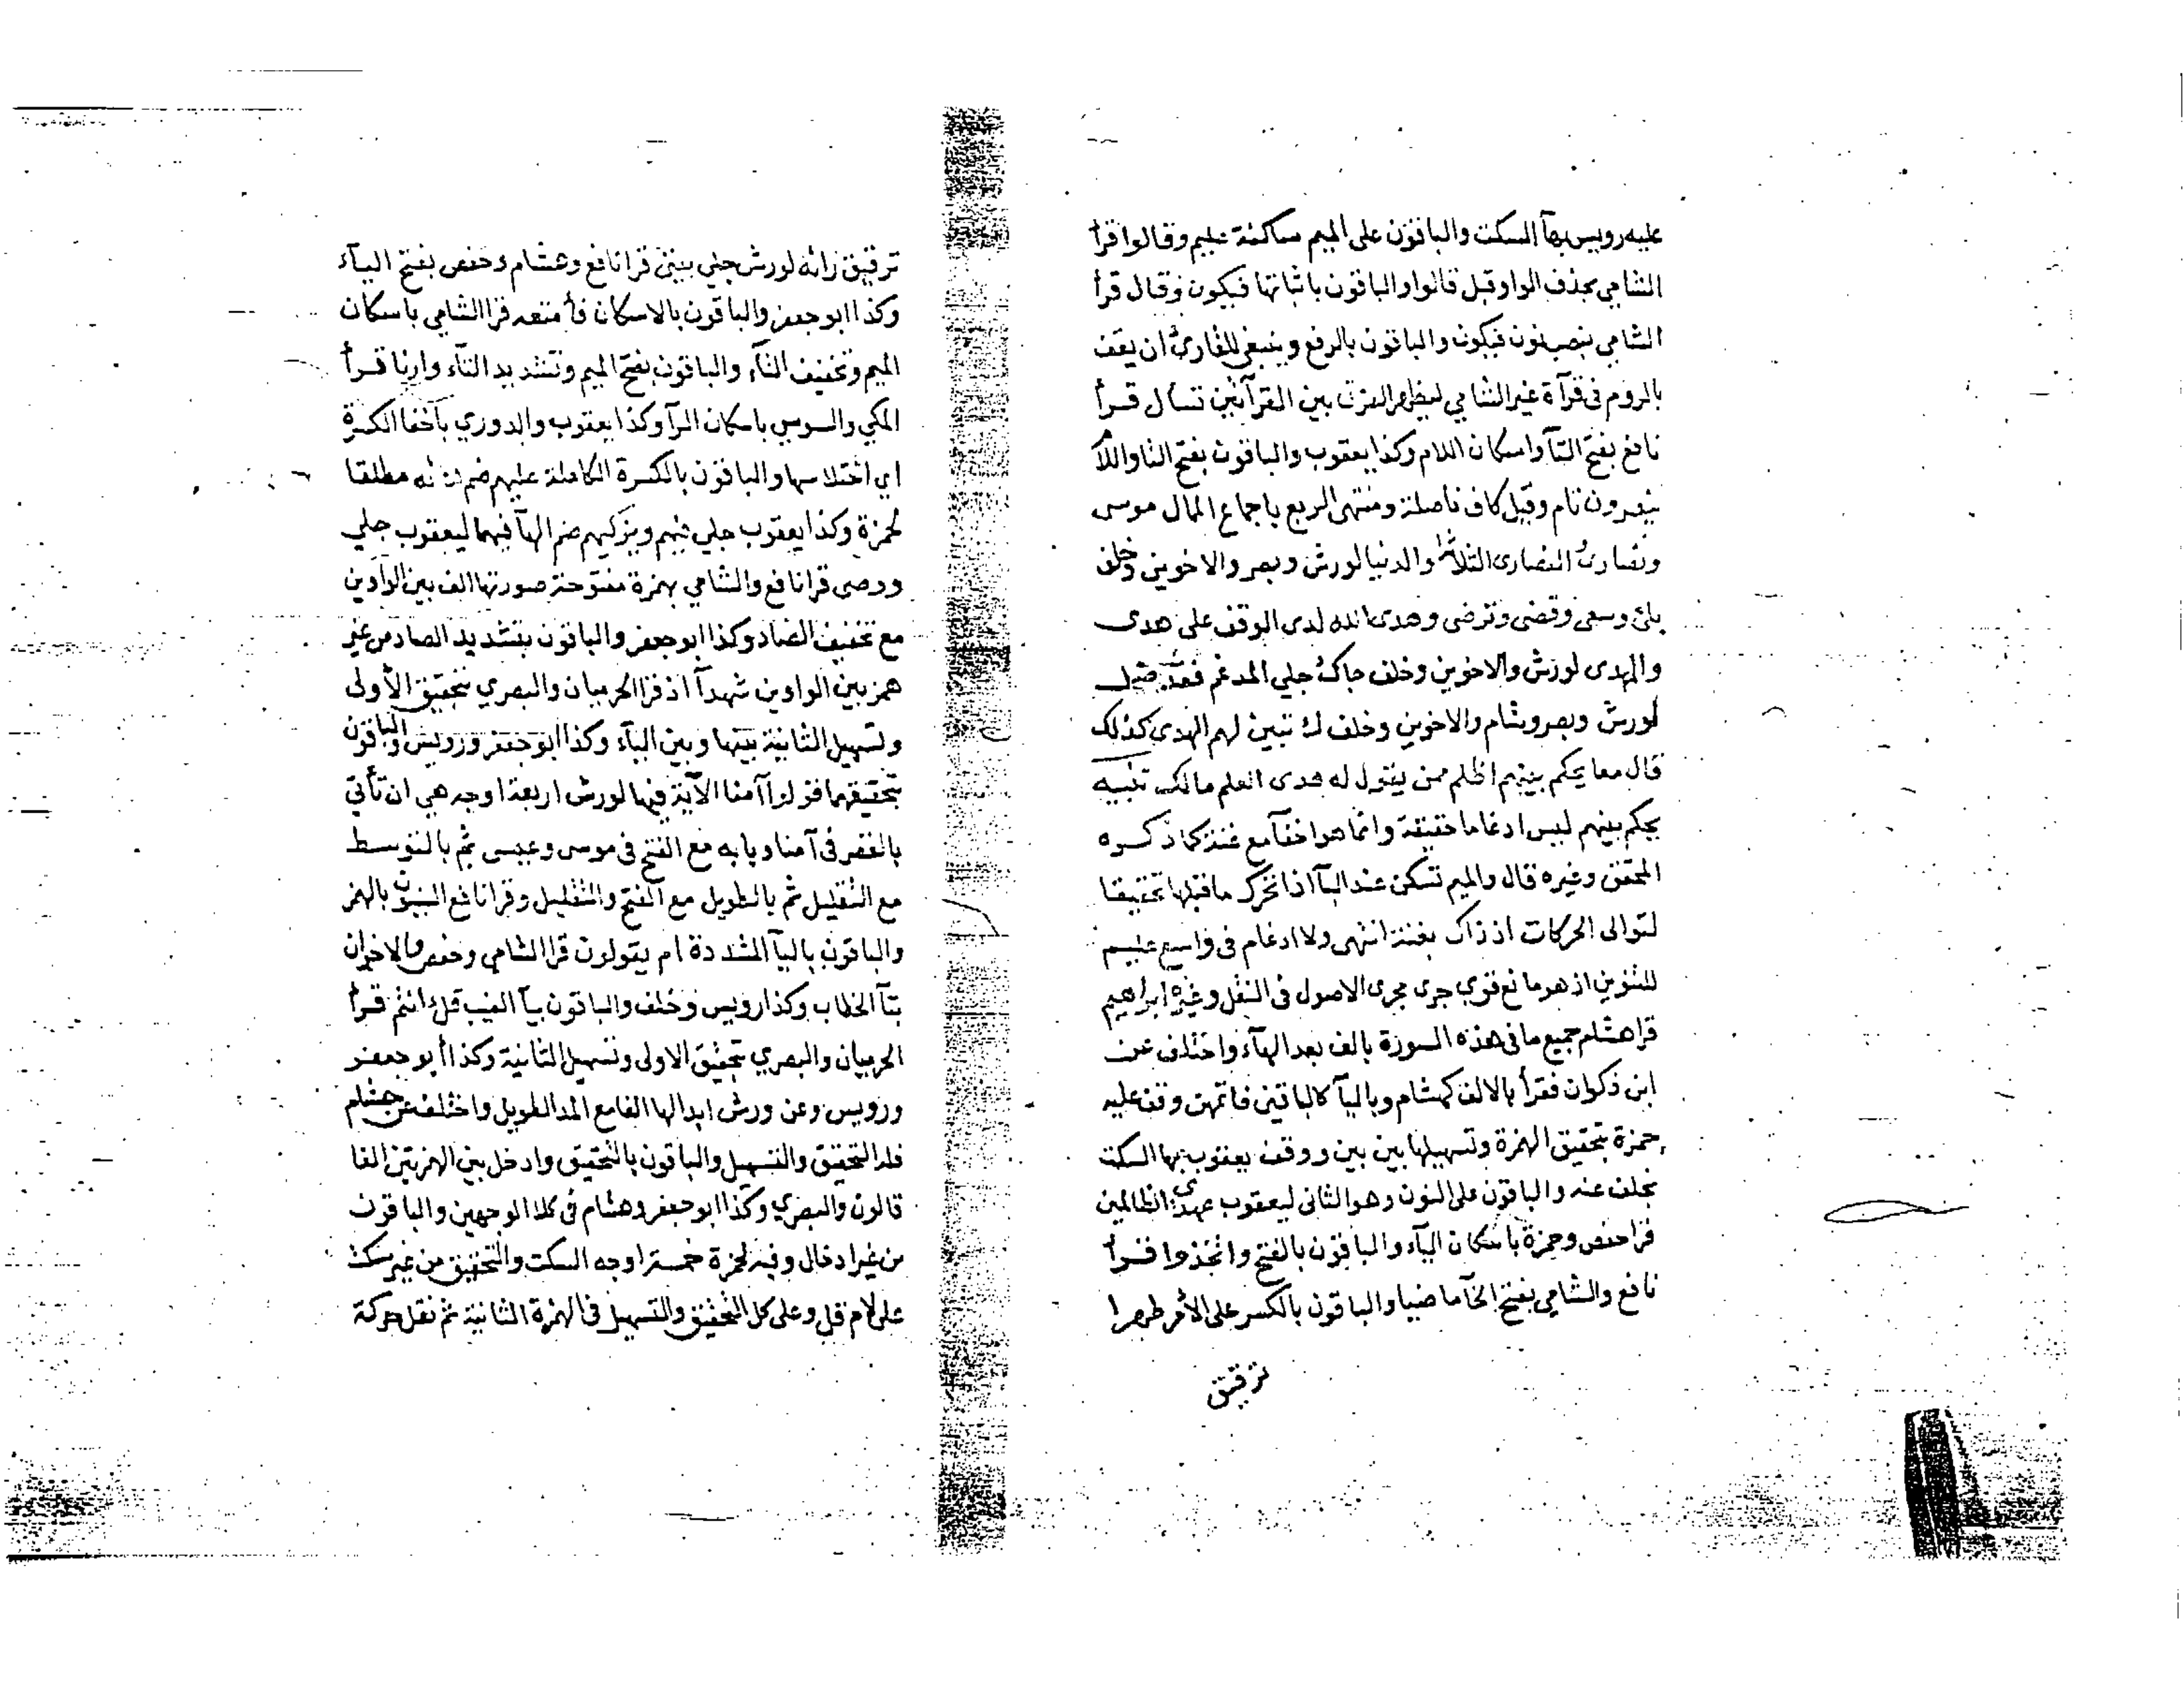 عليه رويس بهآ السكت والباقون على الميم ساكنة عليم وقالوا قرأ
الشامي بحذف الواو قبل قالوا والباقون باثباتها فيكون وقال قرأ
الشامي بنصب نون فيكون والباقون بالرفع وينبغي للقارئ ان يقف
بالروم فى قرآة غير الشامي ليظهر الفرق بين القرآتين تسأل قرأ
نافع بفتح التآ واسكان اللام وكذا يعقوب والباقون بضم التا واللا
ينصرون تام وقيل كاف فاصلة ومنتهى الربع باجماع الممال موسى
ونصارى النصارى الثلاثة والدنيا لورش وبصر والاخوين وخلف
بلى وسعى وقضى وترضى وهدى الله لدى الوقف على هدى
والهدى لورش والاخوين وخلف جاك جلي المدغم فقد ضل
لورش وبصر وشام والاخوين وخلف ك تبين لهم الهدى كذلك
قال معا يحكم بينهم اظلم ممن يقول له هدى العلم مالك تنبيه
يحكم بينهم ليس ادغاما حقيقة وانما هو اخفآ مع غنة كما ذكره
المحقق وغيره قال والميم تسكن عند البآ اذا تحرك ما قبلها تخفيفا
لتوالى الحركات اذ ذاك بغنة انتهى ولا ادغام فى واسع عليم
للتنوين اذ هو مانع قوي جرى مجرى الاصول فى النقل وغيره ابراهيم
قرا هشام جميع ما فى هذه السورة بالف بعد الهآء واختلف عن
ابن ذكوان فقرأ بالالف كهشام وباليآ كالباقين فاتمهن وقف عليه
حمزة بتحقيق الهمزة وتسهيلها بين بين ووقف يعقوب بها السكت
بخلف عنه والباقون على النون وهو الثانى ليعقوب عهدى الظالمين
قرا حفص وحمزة باسكان اليآء والباقون بالفتح واتخذوا قرأ
نافع والشامي بفتح الخآ ماضيا والباقون بالكسر على الأمر طهرا
ترقيق
ترقيق رائه لورش جلي بيتى قرا نافع وهشام وحفص بفتح اليآء
وكذا ابو جعفر والباقون بالاسكان فأمتعه قرا الشامي باسكان
الميم وتخفيف التآء والباقون بفتح الميم وتشديد التآء وارنا قرأ
المكي والسوسي باسكان الرآ وكذا يعقوب والدوري باخفا الكسرة
اي اختلاسها والباقون بالكسرة الكاملة عليهم ضم هائه مطلقا
لحمزة وكذا يعقوب جلي فيهم ويزكيهم ضم الهآ فيهما ليعقوب جلي
ووصى قرا نافع والشامي بهمزة مفتوحة صورتها الف بين الواوين
مع تخفيف الصاد وكذا ابو جعفر والباقون بتشديد الصاد من غير
همز بين الواوين شهدآ اذ قرا الحرميان والبصري بتحقيق الأولى
وتسهيل الثانية بينها وبين اليآء وكذا ابو جعفر ورويس والباقون
بتحقيقهما قولوا آمنا الآية فيها لورش اربعة اوجه هي ان تأتي
بالقصر فى آمنا وبابه مع الفتح فى موسى وعيسى ثم بالتوسط
مع التقليل ثم بالطويل مع الفتح والتقليل وقرا نافع النبيون بالهمز
والباقون باليآ المشددة ام يقولون قرا الشامي وحفص والاخوان
بتآ الخطاب وكذا رويس وخلف والباقون بيآ الغيب قل ءانتم قرأ
الحرميان والبصري بتحقيق الاولى وتسهيل الثانية وكذا أبو جعفر
ورويس وعن ورش ابدالها الفا مع المد الطويل واختلف عن هشام
فله التحقيق والتسهيل والباقون بالتحقيق وادخل بين الهمزتين الفا
قالون والبصري وكذا ابو جعفر وهشام فى كلا الوجهين والباقون
من غير ادخال وفيه لحمزة خمسة اوجه السكت والتحقيق من غير سكت
على لام قل وعلى كل التحقيق والتسهيل فى الهمزة الثانية ثم نقل حركة